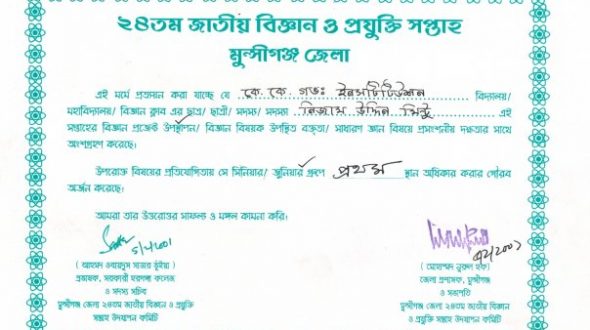 ২৪তম জাতীয় বিজ্ঞান ও প্রযুক্তি সপ্তাহ
মুন্সীগঞ্জ জেলা
এই মর্মে প্রত্যয়ন করা যাচ্ছে যে কে. কে. গভঃ ইনসটিটিউশন বিদ্যালয়/
মহাবিদ্যালয়/ বিজ্ঞান ক্লাব এর ছাত্র/ ছাত্রী/ সদস্য/ সদস্যা নিজাম উদ্দিন মিন্টু এই
সপ্তাহের বিজ্ঞান প্রজেক্ট উপস্থাপন/ বিজ্ঞান বিষয়ক উপস্থিত বক্তৃতা/ সাধারণ জ্ঞান বিষয়ে প্রশংসনীয় দক্ষতার সাথে
অংশগ্রহণ করেছে।
উপরোক্ত বিষয়ের প্রতিযোগিতায় সে সিনিয়ার/ জুনিয়ার গ্রুপে প্রথম স্থান অধিকার করার গৌরব
অর্জন করেছে।
আমরা তার উত্তরোত্তর সাফল্য ও মঙ্গল কামনা করি।
5/7/2001
( আহমদ ওবায়দুস সাত্তার ভূঁইয়া )
প্রভাষক, সরকারী হরগঙ্গা কলেজ
ও সদস্য সচিব
মুন্সীগঞ্জ জেলা ২৪তম জাতীয় বিজ্ঞান ও প্রযুক্তি
সপ্তাহ উদযাপন কমিটি
( মোহাম্মদ নুরুল হক )
জেলা প্রশাসক, মুন্সীগঞ্জ
ও সভাপতি
মুন্সীগঞ্জ জেলা ২৪তম জাতীয় বিজ্ঞান
ও প্রযুক্তি সপ্তাহ উদযাপন কমিটি